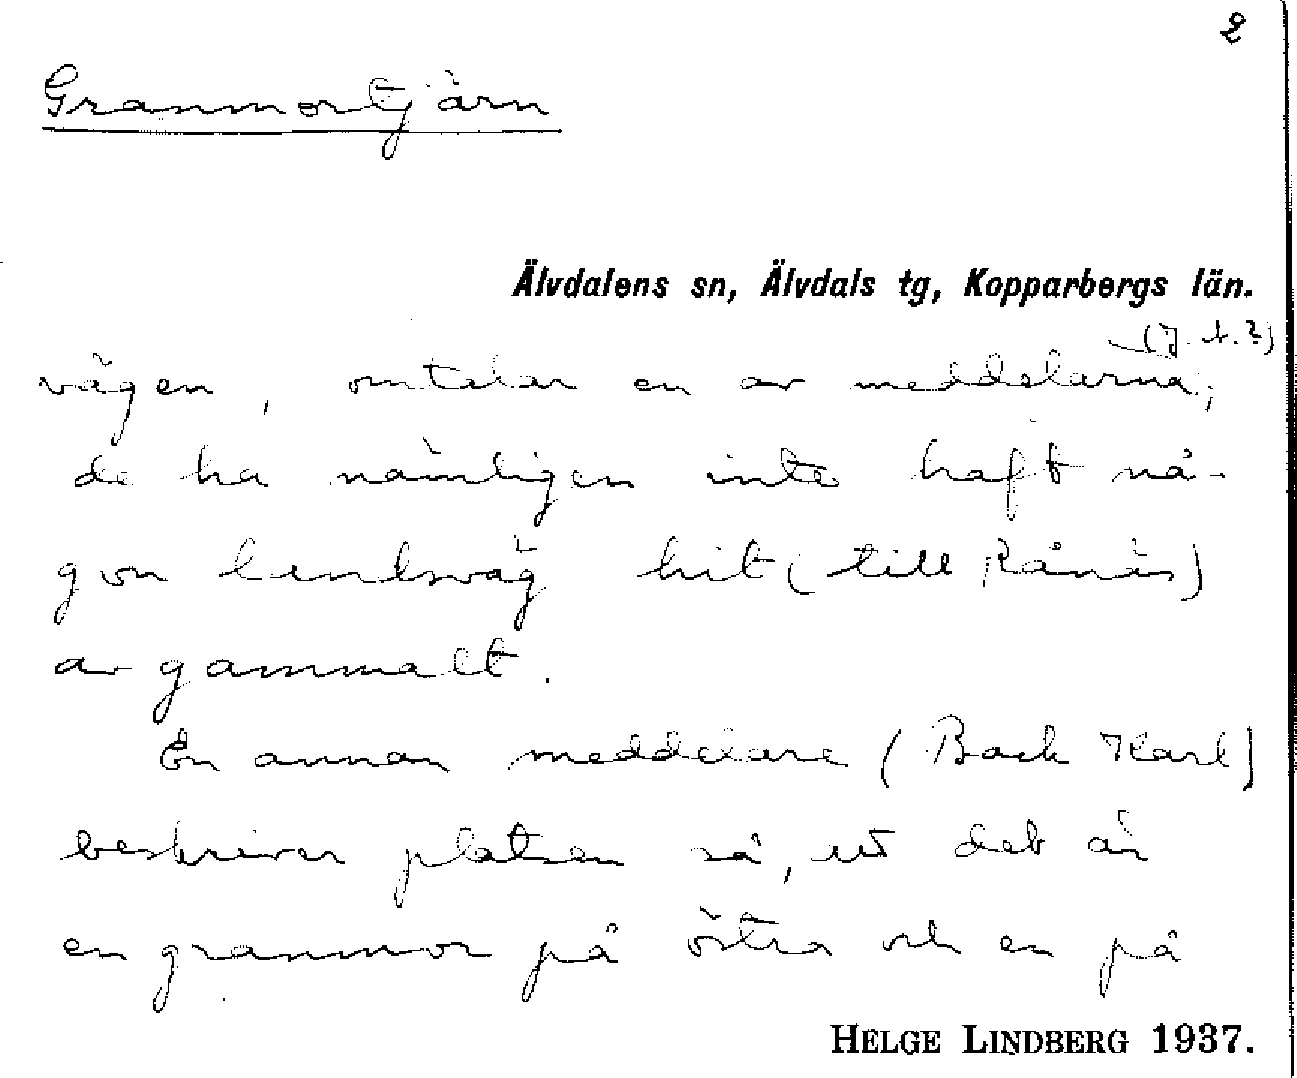 2
Granmortjärn
Älvdalens sn, Älvdals tg, Kopparbergs län.
vägen, omtalar en av meddelarna;
de ha nämligen inte haft nå-
gon landsväg hit (till Rånäs)
av gammalt.
En annan meddelare (Back Karl)
beskriver platsen så, att det är
en granmor på östra och en på
HELGE LINDBERG 1937.